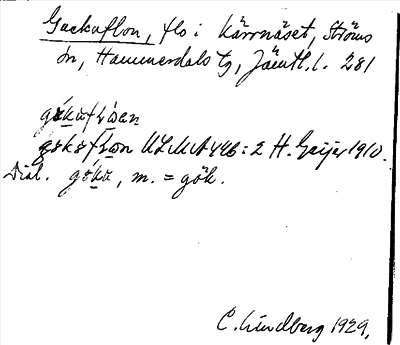 Gackaflon, flo i Kärrnäset, Ströms
sn, Hammerdals tg, Jämtl. l. 281
gåkåflòen
gåkåflon ULMA 446:2 H. Geijer 1910.
Dial. gåkå, m. = gök.
C. Lindberg 1929.